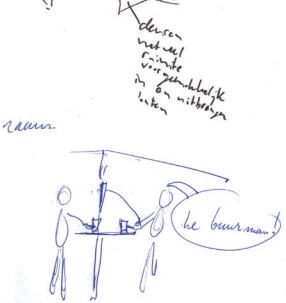 deuren
met veel
ruimte
voor gemakkelijk
in en uitbrengen
laten
ramen.
he buurman!